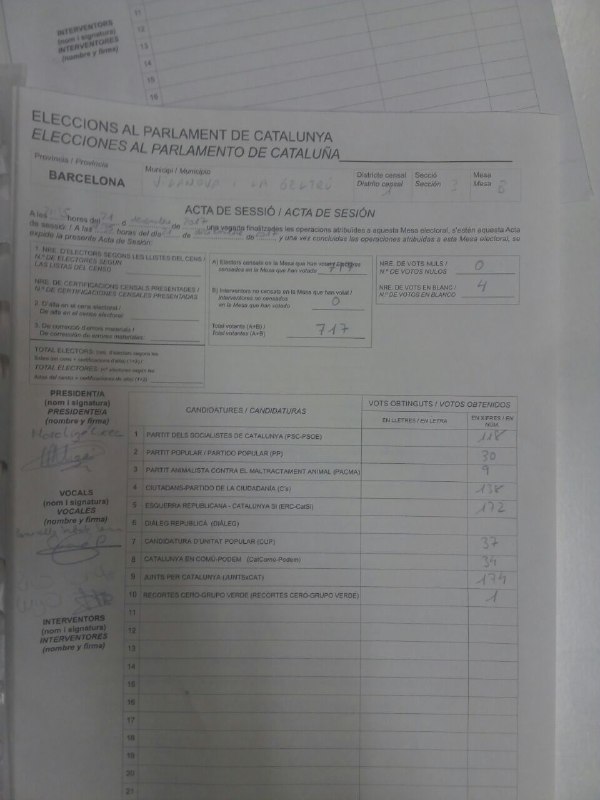 INTERVENTORS
(nom i signatura)
INTERVENTORES
(nombre y firma)
11
12
13
14
15
16
ELECCIONS AL PARLAMENT DE CATALUNYA
ELECCIONES AL PARLAMENTO DE CATALUÑA
Província / Provincia
BARCELONA
Municipi / Municipio
VILANOVA I LA GELTRÚ
Districte censal
Distrito censal 1
Secció
Sección 3
Mesa
Mesa B
ACTA DE SESSIÓ / ACTA DE SESIÓN
A les horas del 21 de 2017 una vegada finalitzades les operacions atribuïdes a aquesta Mesa electoral, s'estén aquesta Acta
de sessió. / A las horas del 21 de de y una vez concluidas las operaciones atribuidas a esta Mesa electoral, se
expide la presente Acta de Sesión:
1. NRE. D'ELECTORS SEGONS LES LLISTES DEL CENS /
N.º DE ELECTORES SEGÚN
LAS LISTAS DEL CENSO
NRE. DE CERTIFICACIONS CENSALS PRESENTADES /
N.º DE CERTIFICACIONES CENSALES PRESENTADAS
2. D'alta en el cens electoral /
De alta en el censo electoral
3. De correcció d'errors materials /
De corrección de errores materiales
TOTAL ELECTORS
TOTAL ELECTORES
A) Electors censats en la Mesa que han votat /
censados en la Mesa que han votado
B) Interventors no censats en la Mesa que han votat /
Interventores no censados
en la Mesa que han votado 0
Total votants (A+B) /
Total votantes (A+B) 717
NRE. DE VOTS NULS /
N.º DE VOTOS NULOS 0
NRE. DE VOTS EN BLANC /
N.º DE VOTOS EN BLANCO 4
PRESIDENT/A
(nom i signatura)
PRESIDENTE/A
(nombre y firma)
VOCALS
(nom i signatura)
VOCALES
(nombre y firma)
INTERVENTORS
(nom i signatura)
INTERVENTORES
(nombre y firma)
CANDIDATURES / CANDIDATURAS
VOTS OBTINGUTS / VOTOS OBTENIDOS
EN LLETRES / EN LETRA
EN XIFRES / EN
NÚM.
1 PARTIT DELS SOCIALISTES DE CATALUNYA (PSC-PSOE) 118
2 PARTIT POPULAR / PARTIDO POPULAR (PP) 30
3 PARTIT ANIMALISTA CONTRA EL MALTRACTAMENT ANIMAL (PACMA) 9
4 CIUTADANS-PARTIDO DE LA CIUDADANÍA (C's) 138
5 ESQUERRA REPUBLICANA - CATALUNYA SÍ (ERC-CatSí) 172
6 DIÀLEG REPUBLICÀ (DIÀLEG)
7 CANDIDATURA D'UNITAT POPULAR (CUP) 37
8 CATALUNYA EN COMÚ-PODEM (CatComú-Podem) 34
9 JUNTS PER CATALUNYA (JUNTSxCAT) 174
10 RECORTES CERO-GRUPO VERDE (RECORTES CERO-GRUPO VERDE) 1
11
12
13
14
15
16
17
18
19
20
21